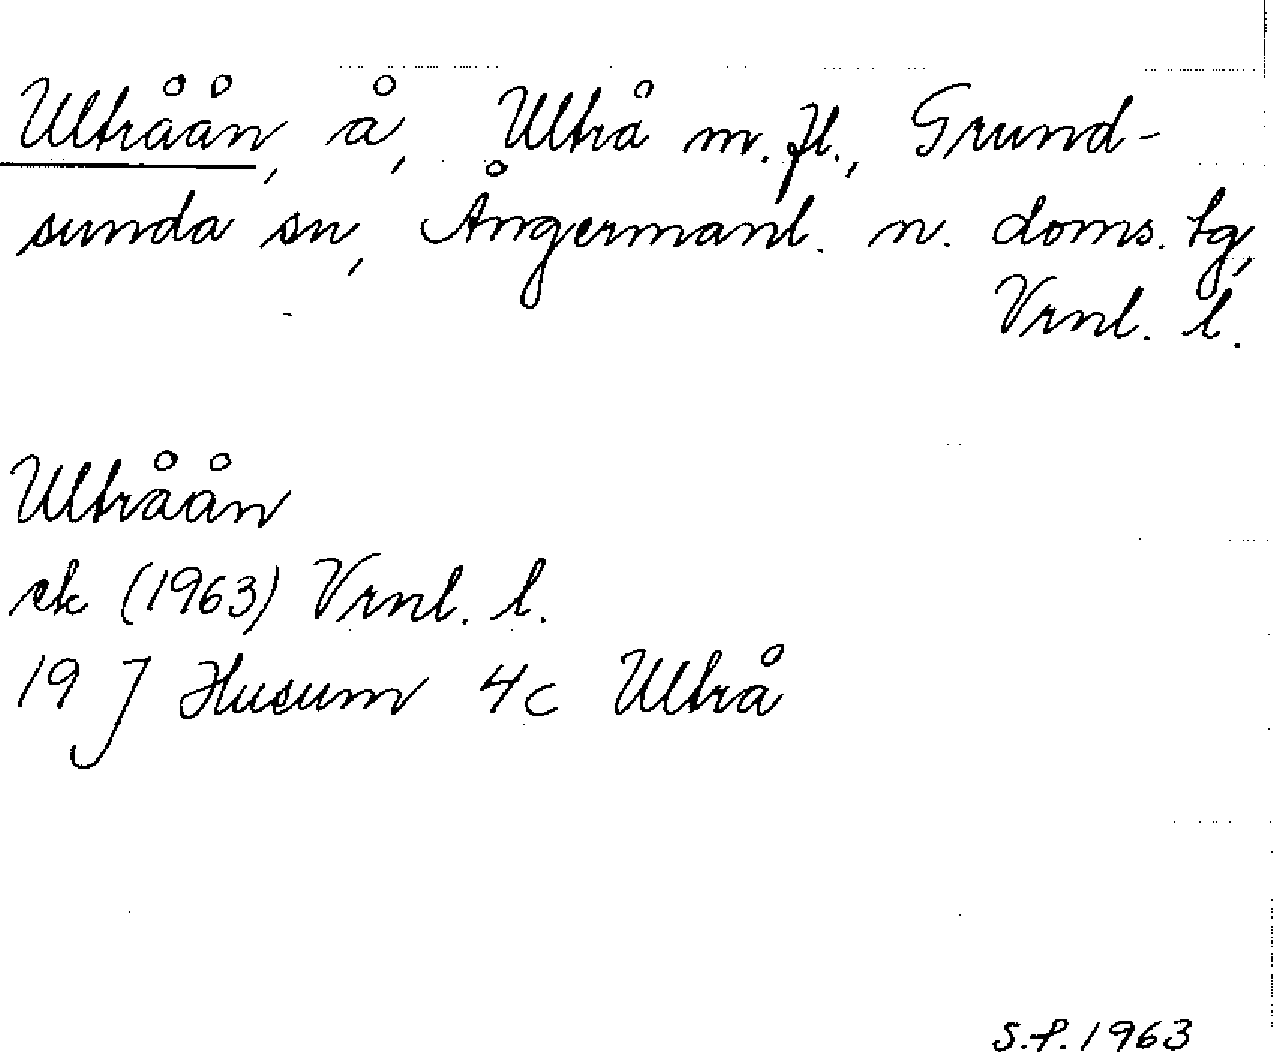 Ultråån, å, Ultrå m.fl., Grund-
sunda sn, Ångermanl. n. doms. tg,
Vrnl. l.
Ultråån
ek (1963) Vrnl. l.
19 J Husum 4c Ultrå
S.P. 1963